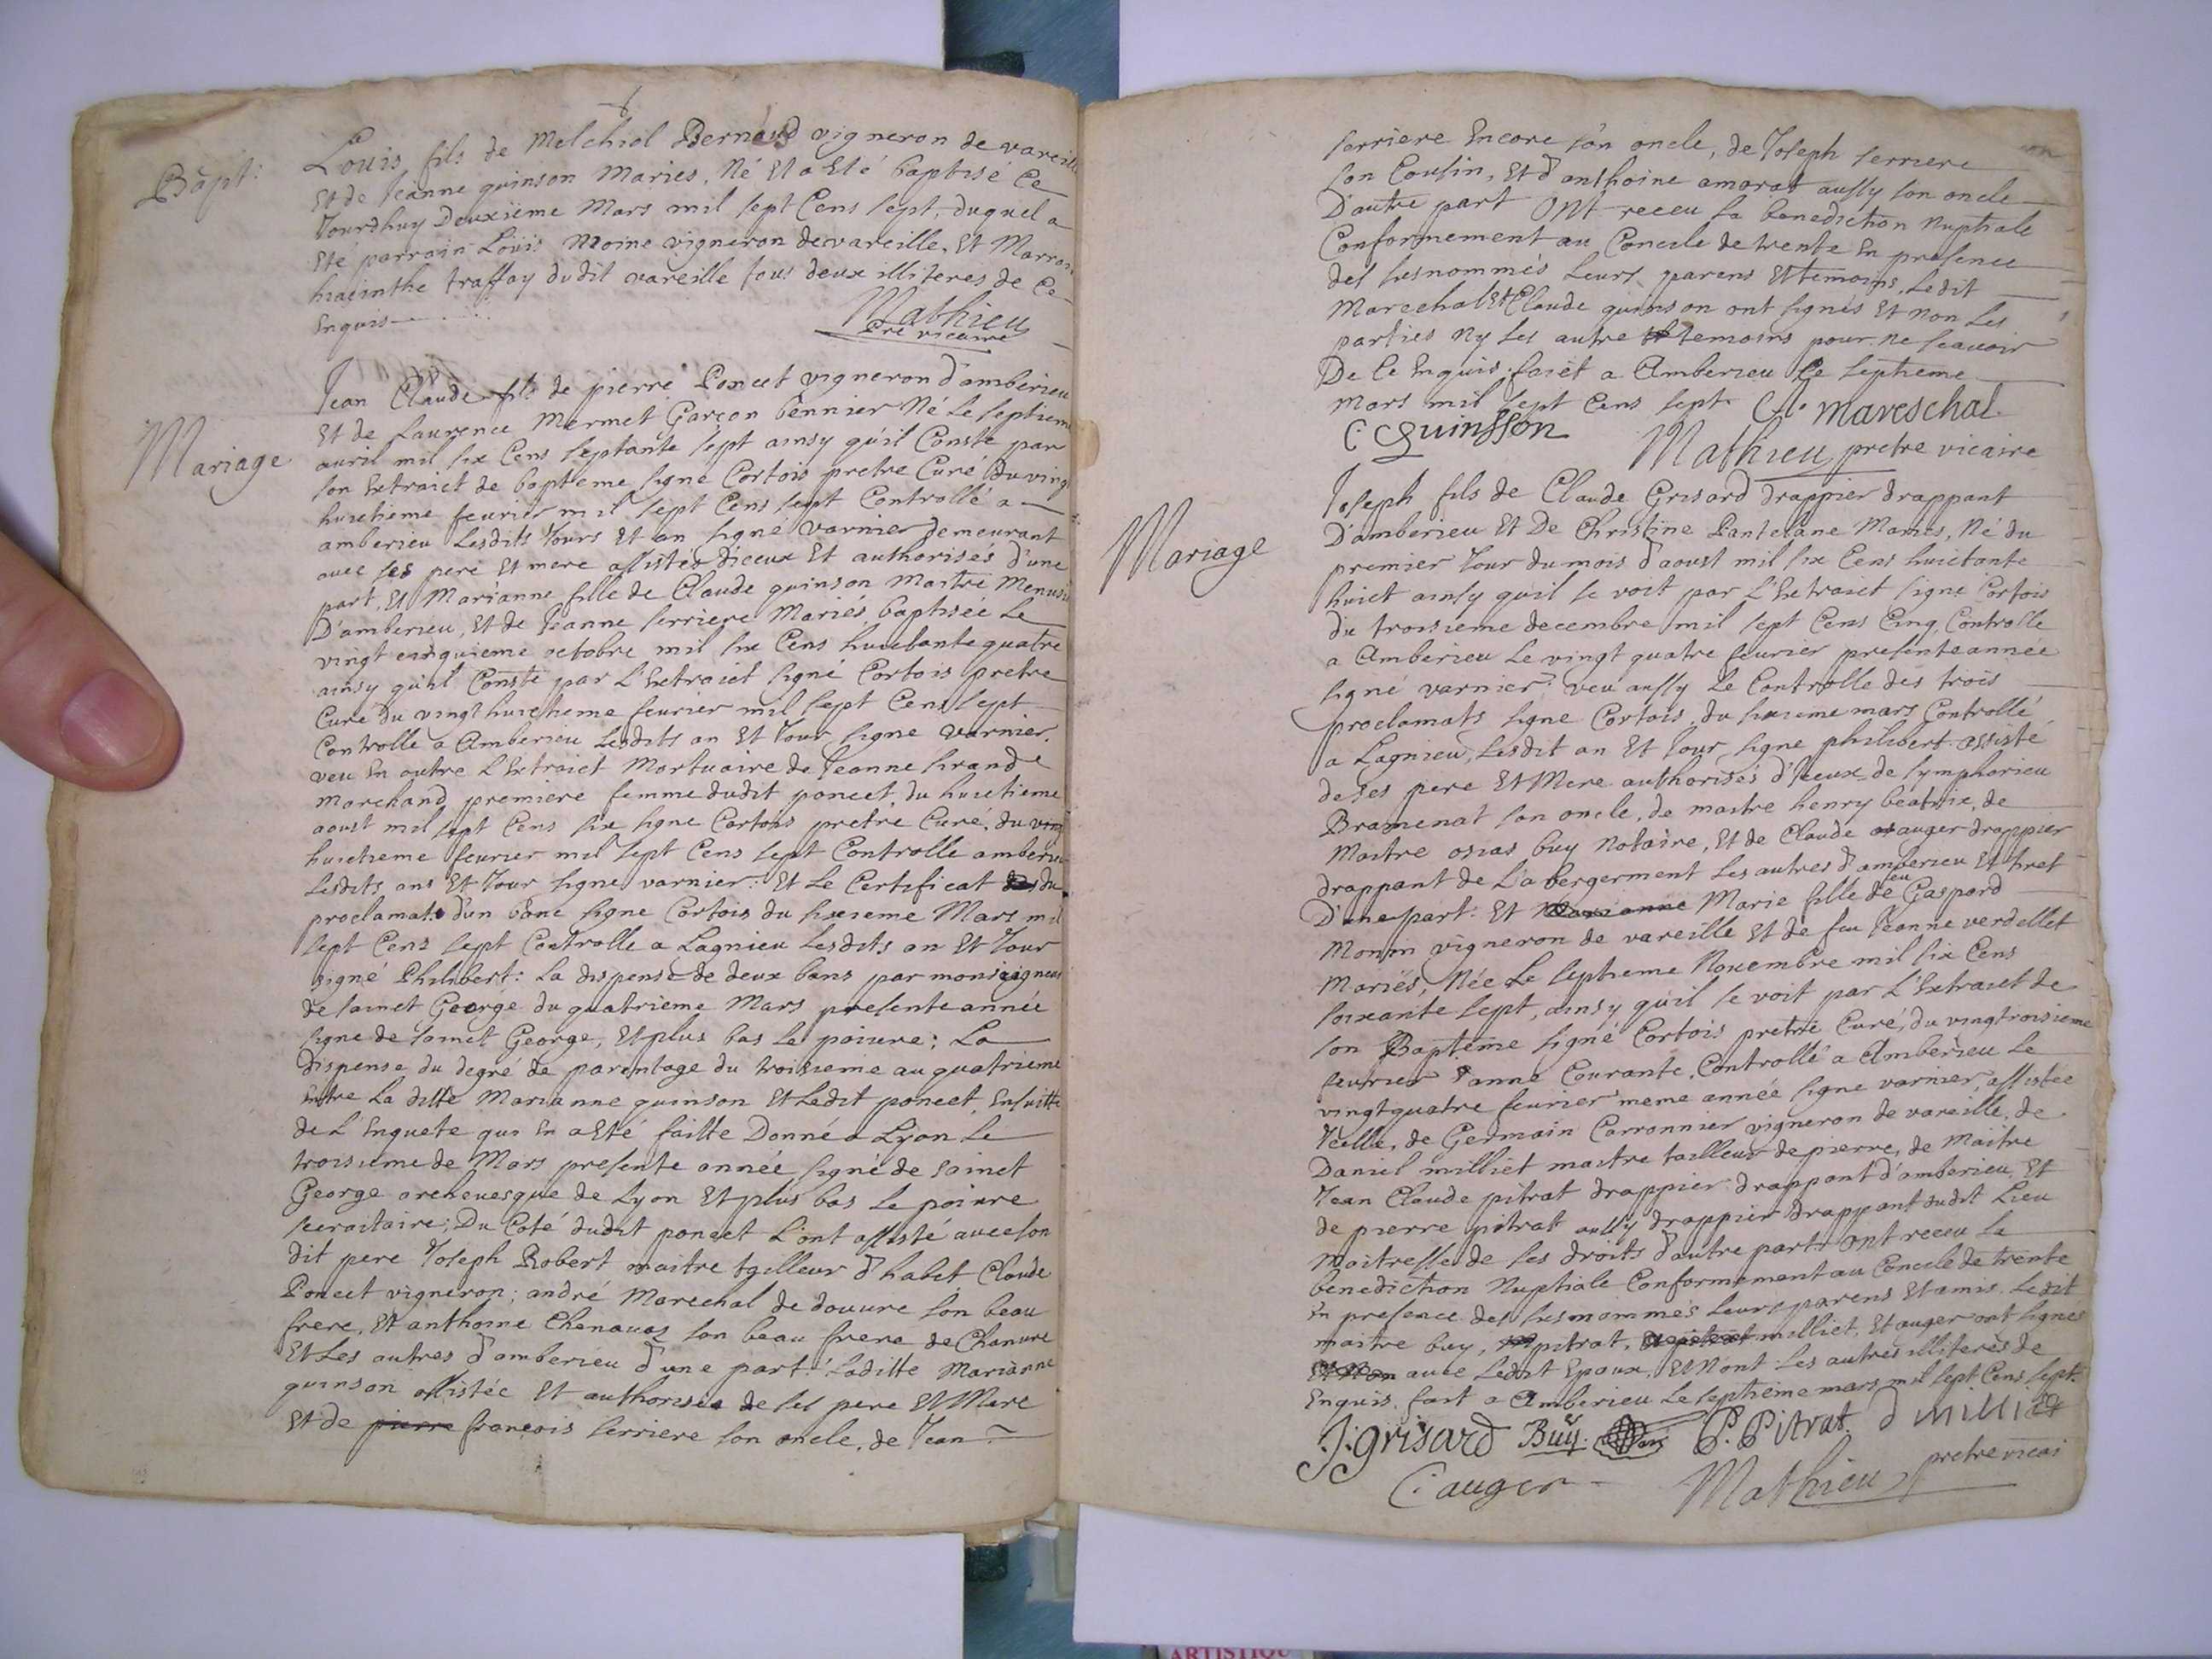 Bapt:
Louis fils de Melchiol Bernard vigneron de vareille
Et de Jeanne quinson Maries, Né Et a Eté baptisé Ce
Jourdhuy Deuxiême Mars mil sept Cens sept, duquel a
Eté parrain Loüis Moine vigneron de vareille, Et Marrai
hiacinthe traffay dudit vareille tous deux illiteres de Ce
Enquis
Mathieu
ptre vicaire
Mariage
Jean Claude fils de pierre Poncet vigneron d'amberieu
Et de Laurence Mermet Garçon bennier Né Le septiem
auril mil six Cens septante sept ainsy qu'il Conste par
son Extraict de bapteme signe Cortois pretre Curé du ving
huictieme feurier mil sept Cens sept Controllé a
amberieu Lesdits Jours Et an signe varnier demeurant
auec ses pere Et mere assistés d'iceux Et authorisés d'une
part, Et Marianne fille de Claude quinson Maitre Menusi
D'amberieu, Et de Jeanne serriere Mariés, baptisée Le
vingt cinquieme octobre mil six Cens huictante quatre
ainsy qu'il Conste par L'Extraict signé Cortois pretre
Curé du vingt huictieme feurier mil sept Cens sept
Controlle a Amberieu Lesdits an Et Jour signe varnier.
veu En outre L'Extraict Mortuaire de Jeanne
marchand premiere femme dudit poncet, du huictieme
aoust mil sept Cens six signe Cortois pretre Curé, du vint
huictieme feurier mil sept Cens sept Controlle amberieu
Lesdits ans Et Jour signe varnier: Et Le Certificat du
proclamat d'un banc signe Cortois du sixieme Mars mil
sept Cens sept Controlle a Lagnieu Lesdits an Et Jour
signé Philibert: La dispense de deux bans par monseigneur
de sainct George du quatrieme Mars presente année
signe de sainct George, Et plus bas Le poiure; La
dispense du degré de parentage du troisieme au quatrieme
Entre La ditte Marianne quinson Et Ledit poncet, Ensuitte
de L'Enquete qui En a Eté faitte Donné a Lyon Le
troisieme de Mars presente année signé de sainct
George archeuesque de Lyon Et plus bas Le poiure
secraitaire; Du Coté dudit poncet L'ont assisté auec son
dit pere Joseph Robert maitre tailleur d'habit Claude
Poncet vigneron; andré Marechal de douure son beau
frere, Et anthoine Chenauaz son beau frere de Chanure
Et Les autres d'amberieu d'une part: Laditte Marianne
quinson assistée Et authorisée de ses pere Et Mere
Et de pierre francois serriere son oncle, de Jean
serriere Encore son oncle, de Joseph serriere
son Cousin, Et d'anthoine amarat aussy son oncle
D'autre part Ont receu La benediction Nuptiale
Conformement au Concile de trente En presence
des susnommés Leurs parens Et temoins, Ledit
Marechal Et Claude quinson ont signés Et non Les
parties Ny Les autre temoins pour ne scauoir
De Ce Enquis; faict a Amberieu Le septieme
mars mil sept Cens sept. Cl. mareschal
C Quinsson
Mathieu pretre vicaire
Mariage
Joseph fils de Claude Grisard drappier drappant
D'amberieu Et De Christine Pantelane Mariés, Né du
premier Jour du mois d'aoust mil six Cens huictante
huict ainsy qu'il se voit par L'Extraict signe Cortois
du troisieme decembre mil sept Cens Cinq, Controlle
a Amberieu Le vingt quatre feurier presente année
signé varnier, veu aussy Le Controlle des trois
proclamats signe Cortois, du sixieme mars Controllé
a Lagnieu, Lesdit an Et Jour signe philibert assisté
de ses pere Et Mere authorisés d'Iceux de symphorien
Bramenat son oncle, de maitre henry beatrix, de
Maitre osias buy Notaire, Et de Claude auger drappier
drappant de L'abergerment Les autres d'amberieu Et
D'une part: Et Marianne Marie fille de feu Gaspard
Monin vigneron de vareille Et de feu Jeanne verdellet
Mariés, Née Le septieme Nouembre mil six Cens
soixante sept, ainsy qu'il se voit par L'Extraict de
son Bapteme signé Cortois pretre Curé, du vingtroisieme
feurier L'anné Courante, Controlle a Amberieu Le
vingt quatre feurier meme année signe varnier, assistée
Jcelle, de Germain Carronnier vigneron de vareille, de
Daniel milliet maitre tailleur de pierre, de Maitre
Jean Claude pitrat drappier drappant d'amberieu, Et
de pierre pitrat aussy drappier drappant dudit Lieu
Maitresse de ses droits d'autre part: Ont receu La
benediction Nuptiale Conformement au Concile de trente
En presence des susnommés Leurs parens Et amis. Ledit
maitre buy, pitrat, milliet, Et auger ont signes
auec Ledit Epoux, Et Nont Les autres illiterés de
Enquis, fait a Amberieu Le septieme mars mil sept Cens sept.
J. grisard Buy P. Pitrat d milliet
C. auger Mathieu pretre vicai
ARTISTIQU